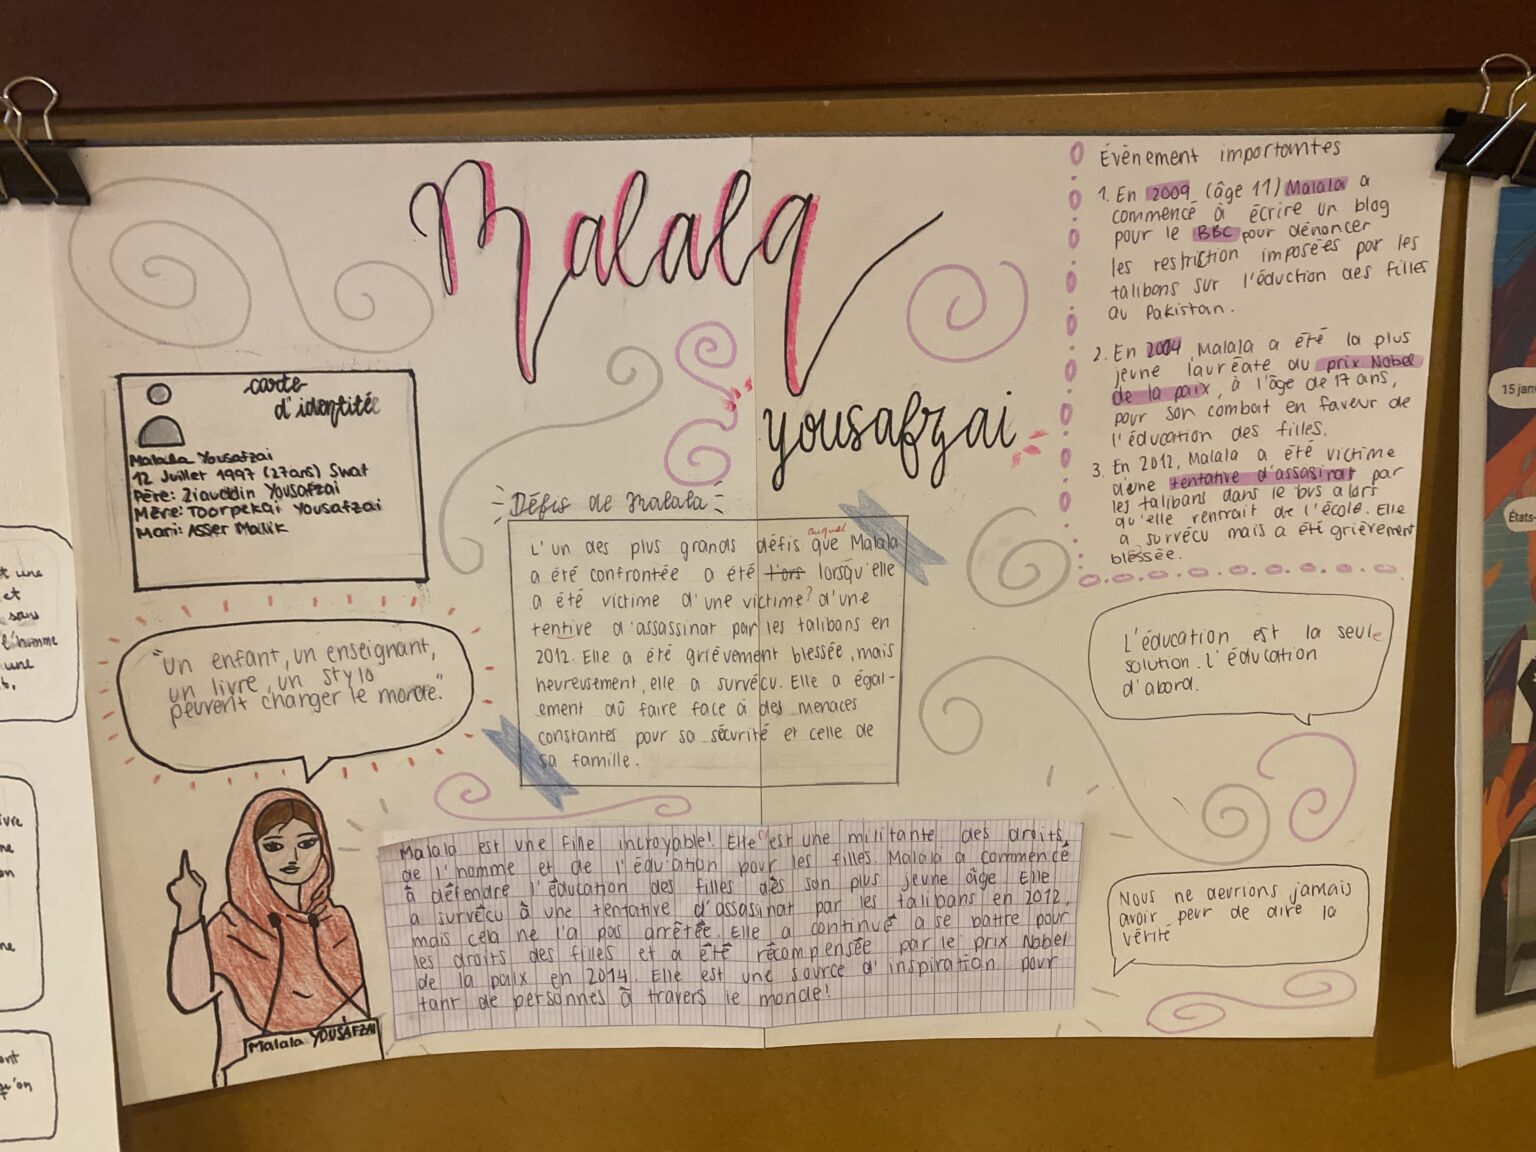 Malala
yousafzai
carte
d'identité
Malala Yousafzai
12 Juillet 1997 (27ans) Swat
Père: Ziauddin Yousafzai
Mère: Toorpekai Yousafzai
Mari: Asser Malik
"Un enfant, un enseignant,
un livre, un stylo
peuvent changer le monde."
Malala YOUSAFZAI
Défis de Malala
auquel
L'un des plus grands défis que Malala
a été confrontée a été lors lorsqu'elle
a été victime d'une victime? d'une
tentive d'assassinat par les talibans en
2012. Elle a été grièvement blessée, mais
heureusement, elle a survécu. Elle a égal-
ement dû faire face à des menaces
constantes pour sa sécurité et celle de
sa famille.
Malala est une fille incroyable! Elle est une militante des droits,
de l'homme et de l'édu'ation pour les filles Malala a commencé
à défendre l'éducation des filles dès son plus jeune âge Elle
a survécu à une tentative d'assasinat par les talibans en 2012,
mais cela ne l'a pas arrêtée. Elle a continué a se battre pour
les droits des filles et a été récompensée par le prix Nobel
de la paix en 2014. Elle est une source d'inspiration pour
tant de personnes à travers le monde!
Évènement importantes
1. En 2009 (âge 11) Malala a
commencé à écrire un blog
pour le BBC pour dénoncer
les restriction imposées par les
talibans sur l'éduction des filles
au Pakistan.
2. En Malala a été la plus
jeune lauréate du prix Nobel
de la paix, à l'âge de 17 ans,
pour son combat en faveur de
l'éducation des filles.
3. En 2012, Malala a été victime
d'une tentative d'assasinat par
les talibans dans le bus alors
qu'elle rentrait de l'école. Elle
a survécu mais a été grièrement
blèssée.
L'éducation est la seule
solution. L'éducation
d'abord.
Nous ne devrions jamais
avoir peur de dire la
vérité
15 janv
États-
t une
et
sans
l'homme
une
ivre
ne
on
ne
ont
qu'on